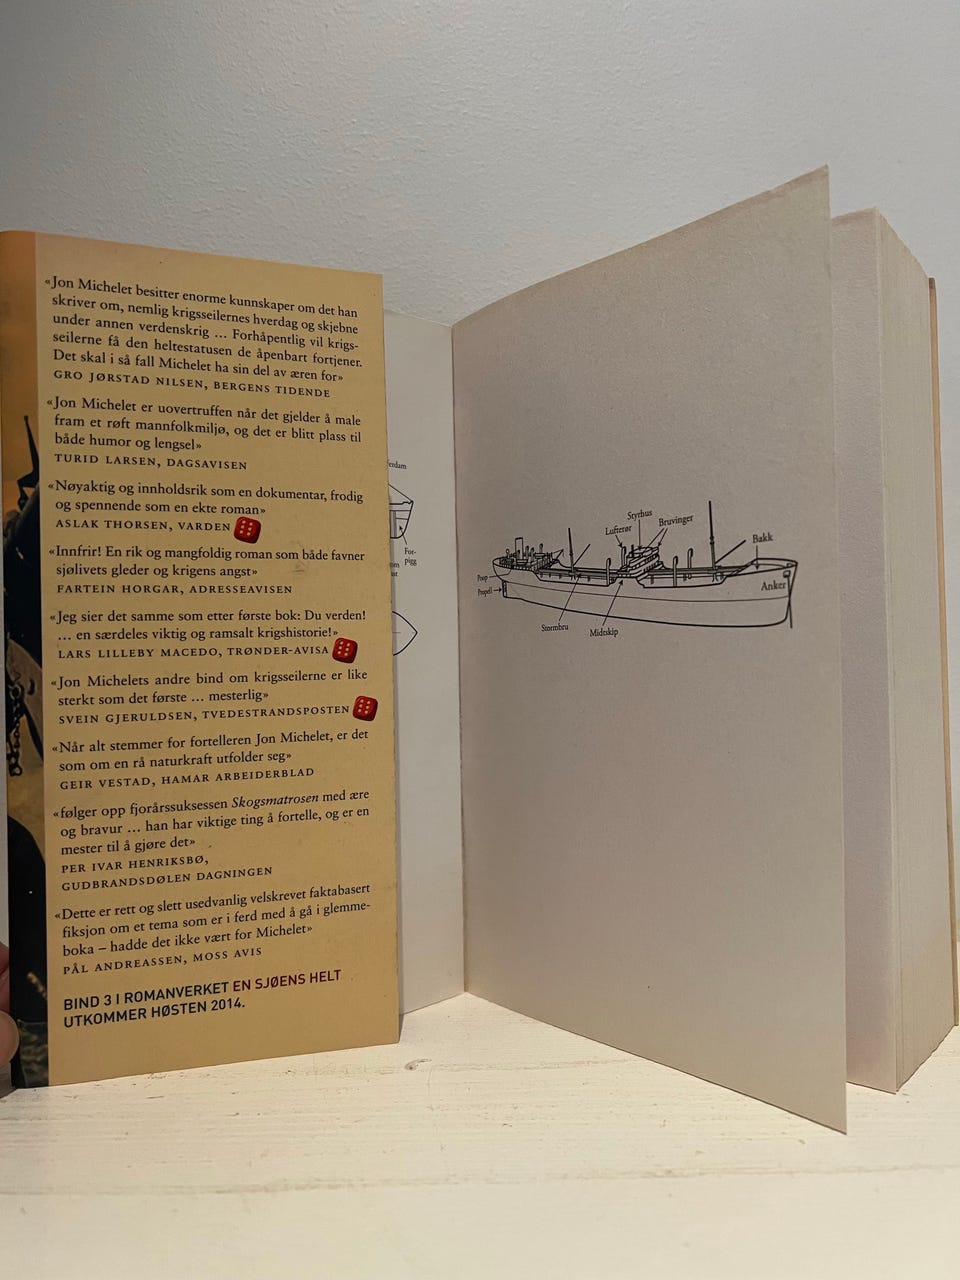 «Jon Michelet besitter enorme kunnskaper om det han
skriver om, nemlig krigsseilernes hverdag og skjebne
under annen verdenskrig ... Forhåpentlig vil krigs-
seilerne få den heltestatusen de åpenbart fortjener.
Det skal i så fall Michelet ha sin del av æren for»
GRO JØRSTAD NILSEN, BERGENS TIDENDE
«Jon Michelet er uovertruffen når det gjelder å male
fram et røft mannfolkmiljø, og det er blitt plass til
både humor og lengsel»
TURID LARSEN, DAGSAVISEN
«Nøyaktig og innholdsrik som en dokumentar, frodig
og spennende som en ekte roman»
ASLAK THORSEN, VARDEN
«Innfrir! En rik og mangfoldig roman som både favner
sjølivets gleder og krigens angst»
FARTEIN HORGAR, ADRESSEAVISEN
«Jeg sier det samme som etter første bok: Du verden!
... en særdeles viktig og ramsalt krigshistorie!»
LARS LILLEBY MACEDO, TRØNDER-AVISA
«Jon Michelets andre bind om krigsseilerne er like
sterkt som det første ... mesterlig»
SVEIN GJERULDSEN, TVEDESTRANDSPOSTEN
«Når alt stemmer for fortelleren Jon Michelet, er det
som om en rå naturkraft utfolder seg»
GEIR VESTAD, HAMAR ARBEIDERBLAD
«følger opp fjorårssuksessen Skogsmatrosen med ære
og bravur ... han har viktige ting å fortelle, og er en
mester til å gjøre det»
PER IVAR HENRIKSBØ,
GUDBRANDSDØLEN DAGNINGEN
«Dette er rett og slett usedvanlig velskrevet faktabasert
fiksjon om et tema som er i ferd med å gå i glemme-
boka – hadde det ikke vært for Michelet»
PÅL ANDREASSEN, MOSS AVIS
BIND 3 I ROMANVERKET EN SJØENS HELT
UTKOMMER HØSTEN 2014.
For-
pigg
Styrhus
Lufterør
Bruvinger
Bakk
Poop
Propell
Anker
Stormbru
Midtskip